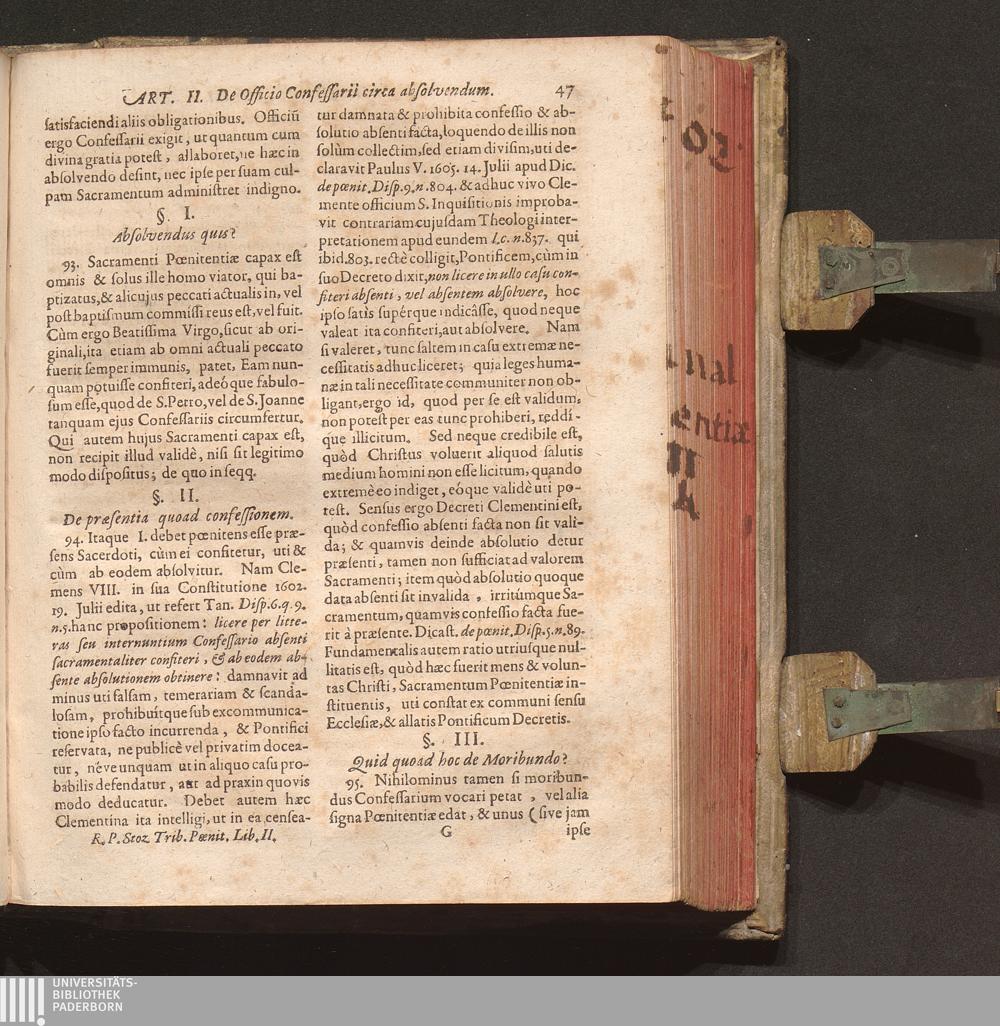 ART. II. De Officio Confeſſarii circa abſolvendum. 47
ſatisfaciendi aliis obligationibus. Officiũ
ergo Confeſſarii exigit, ut quantum cum
divina gratia poteſt, allaboret, ne hæc in
abſolvendo deſint, nec ipſe per ſuam cul-
pam Sacramentum adminiſtret indigno.
§. I.
Abſolvendus quis?
93. Sacramenti Pœnitentiæ capax eſt
omnis & ſolus ille homo viator, qui ba-
ptizatus, & alicujus peccati actualis in, vel
poſt baptiſmum commiſſi reus eſt, vel fuit.
Cùm ergo Beatiſſima Virgo, ſicut ab ori-
ginali, ita etiam ab omni actuali peccato
fuerit ſemper immunis, patet, Eam nun-
quam potuiſſe confiteri, adeóque fabulo-
ſum eſſe, quod de S. Petro, vel de S. Joanne
tanquam ejus Confeſſariis circumfertur.
Qui autem hujus Sacramenti capax eſt,
non recipit illud validè, niſi ſit legitimo
modo diſpoſitus; de quo in ſeqq.
§. II.
De præſentia quoad confeſſionem.
94. Itaque I. debet pœnitens eſſe præ-
ſens Sacerdoti, cùm ei confitetur, uti &
cùm ab eodem abſolvitur. Nam Cle-
mens VIII. in ſua Conſtitutione 1602.
19. Julii edita, ut refert Tan. Diſp. 6. q. 9.
n. 5. hanc propoſitionem: licere per litte-
ras ſeu internuntium Confeſſario abſenti
ſacramentaliter confiteri, & ab eodem ab-
ſente abſolutionem obtinere: damnavit ad
minus uti falſam, temerariam & ſcanda-
loſam, prohibuítque ſub excommunica-
tione ipſo facto incurrenda, & Pontifici
reſervata, ne publicè vel privatim docea-
tur, néve unquam ut in aliquo caſu pro-
babilis defendatur, aut ad praxin quovis
modo deducatur. Debet autem hæc
Clementina ita intelligi, ut in ea cenſea-
R. P. Stoz Trib. Pœnit. Lib. II.
tur damnata & prohibita confeſſio & ab-
ſolutio abſenti facta, loquendo de illis non
ſolùm collectim, ſed etiam diviſim, uti de-
claravit Paulus V. 1605. 14. Julii apud Dic.
de pœnit. Diſp. 9. n. 804. & adhuc vivo Cle-
mente officium S. Inquiſitionis improba-
vit contrariam cujuſdam Theologi inter-
pretationem apud eundem l. c. n. 837. qui
ibid. 803. rectè colligit, Pontificem, cùm in
ſuo Decreto dixit, non licere in ullo caſu con-
fiteri abſenti, vel abſentem abſolvere, hoc
ipſo ſatìs ſupérque indicâſſe, quod neque
valeat ita confiteri, aut abſolvere. Nam
ſi valeret, tunc ſaltem in caſu extremæ ne-
ceſſitatis adhuc liceret; quia leges huma-
næ in tali neceſſitate communiter non ob-
ligant, ergo id, quod per ſe eſt validum,
non poteſt per eas tunc prohiberi, reddí-
que illicitum. Sed neque credibile eſt,
quòd Chriſtus voluerit aliquod ſalutis
medium homini non eſſe licitum, quando
extremè eo indiget, eóque validè uti po-
teſt. Senſus ergo Decreti Clementini eſt,
quòd confeſſio abſenti facta non ſit vali-
da; & quamvis deinde abſolutio detur
præſenti, tamen non ſufficiat ad valorem
Sacramenti; item quòd abſolutio quoque
data abſenti ſit invalida, irritúmque Sa-
cramentum, quamvis confeſſio facta fue-
rit à præſente. Dicaſt. de pœnit. Diſp. 5. n. 89.
Fundamentalis autem ratio utriusque nul-
litatis eſt, quòd hæc fuerit mens & volun-
tas Chriſti, Sacramentum Pœnitentiæ in-
ſtituentis, uti conſtat ex communi ſenſu
Eccleſiæ, & allatis Pontificum Decretis.
§. III.
Quid quoad hoc de Moribundo?
95. Nihilominus tamen ſi moribun-
dus Confeſſarium vocari petat, vel alia
ſigna Pœnitentiæ edat, & unus (ſive jam
G ipſe
entiæ
II
UNIVERSITÄTS-
BIBLIOTHEK
PADERBORN